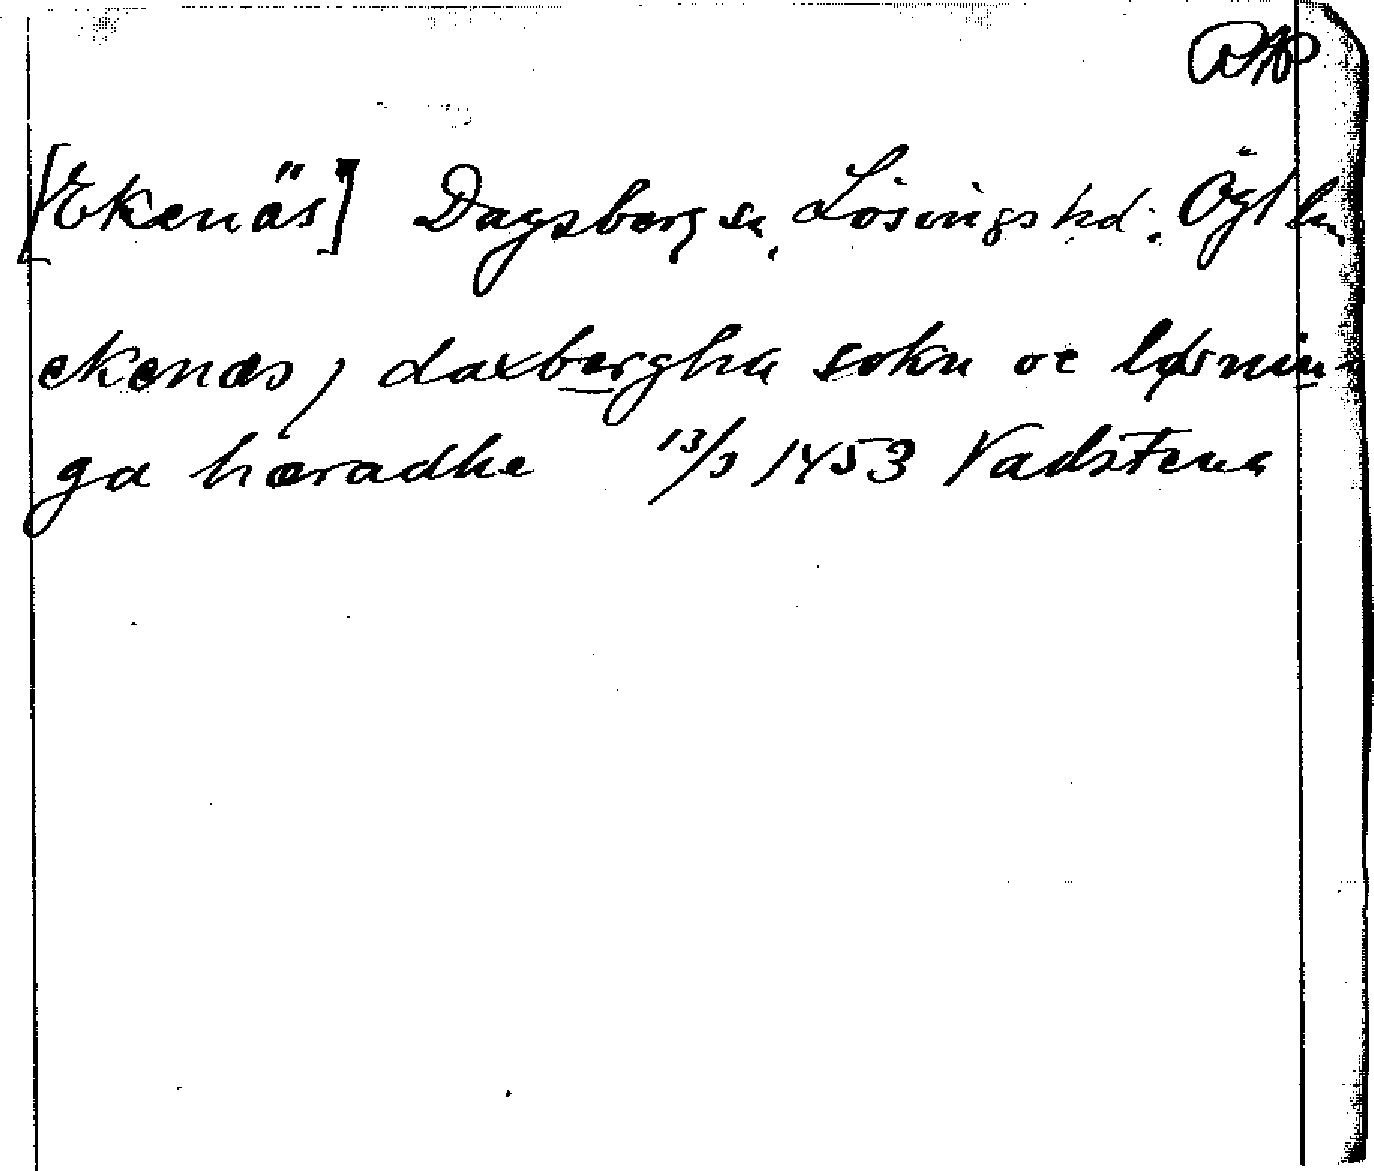 RAP
[Ekenäs] Dagsberg sn, Lösings hd. Ögl län
ekenæs, daxbergha sokn oc løsnin-
ga hæradhe 13/3 1453 Vadstena